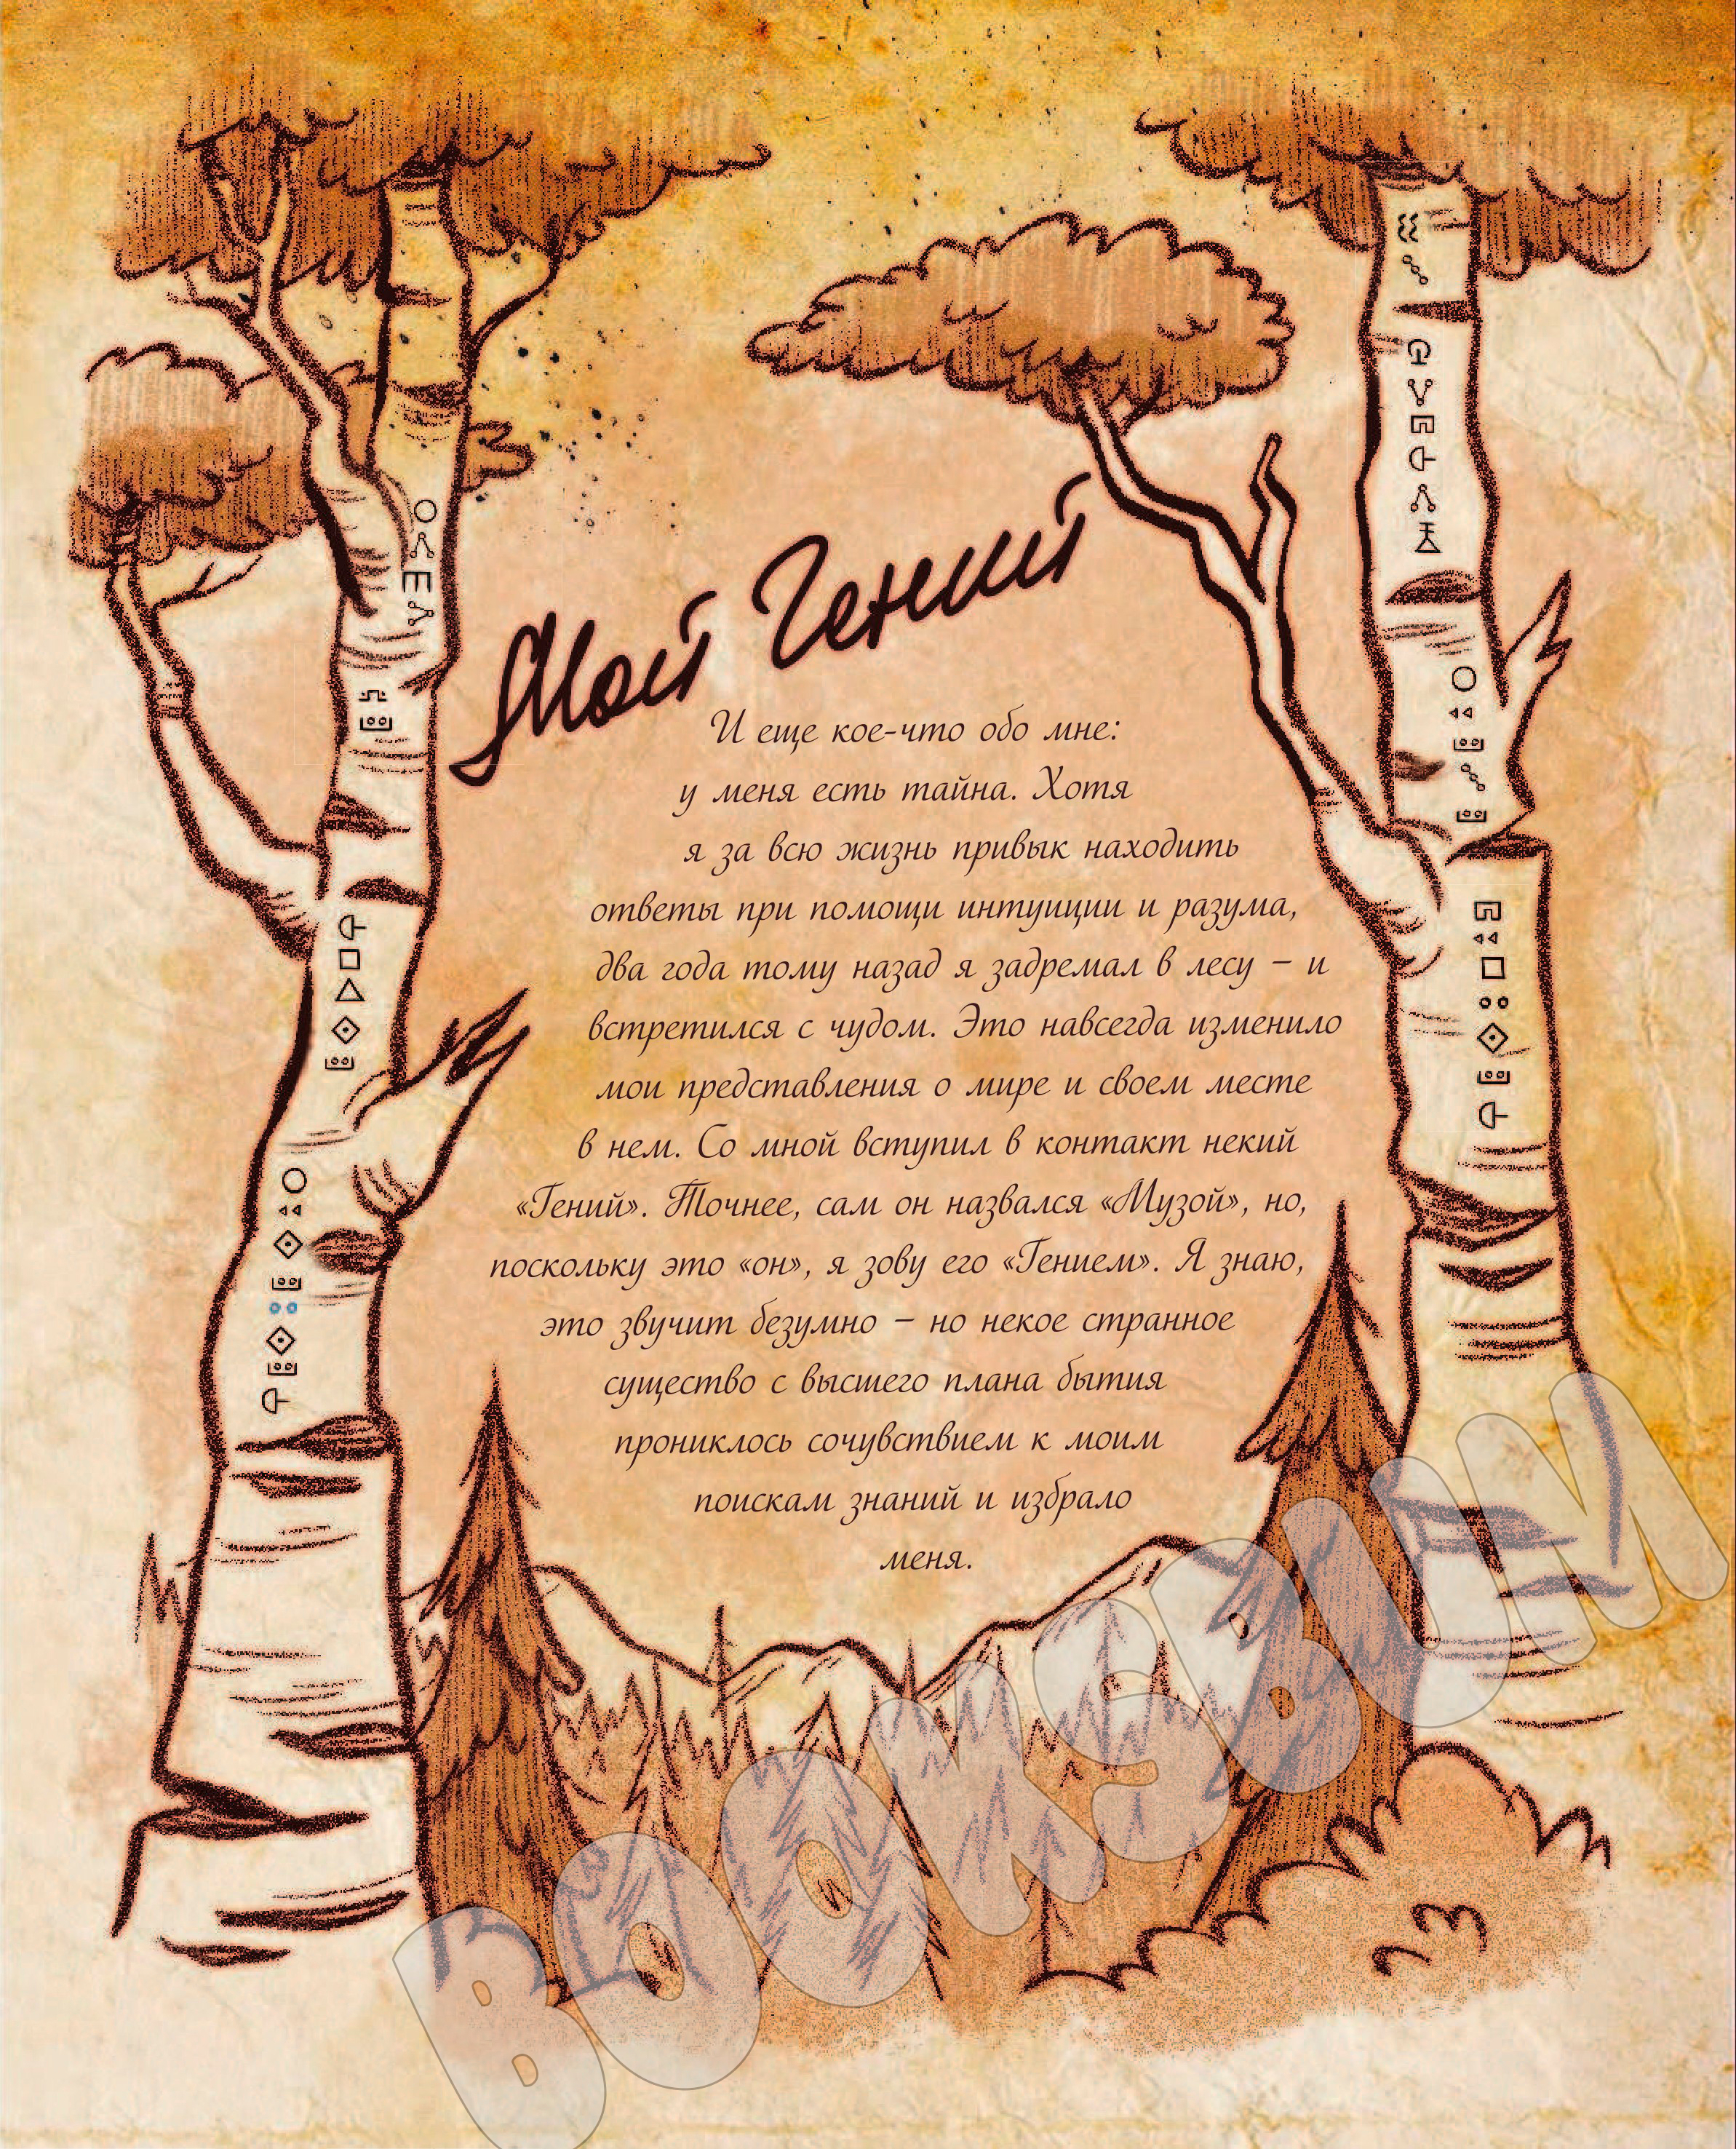 Мой Гений
И еще кое-что обо мне:
у меня есть тайна. Хотя
я за всю жизнь привык находить
ответы при помощи интуиции и разума,
два года тому назад я задремал в лесу – и
встретился с чудом. Это навсегда изменило
мои представления о мире и своем месте
в нем. Со мной вступил в контакт некий
«Гений». Точнее, сам он назвался «Музой», но,
поскольку это «он», я зову его «Гением». Я знаю,
это звучит безумно – но некое странное
существо с высшего плана бытия
прониклось сочувствием к моим
поискам знаний и избрало
меня.
BOOKSBUM